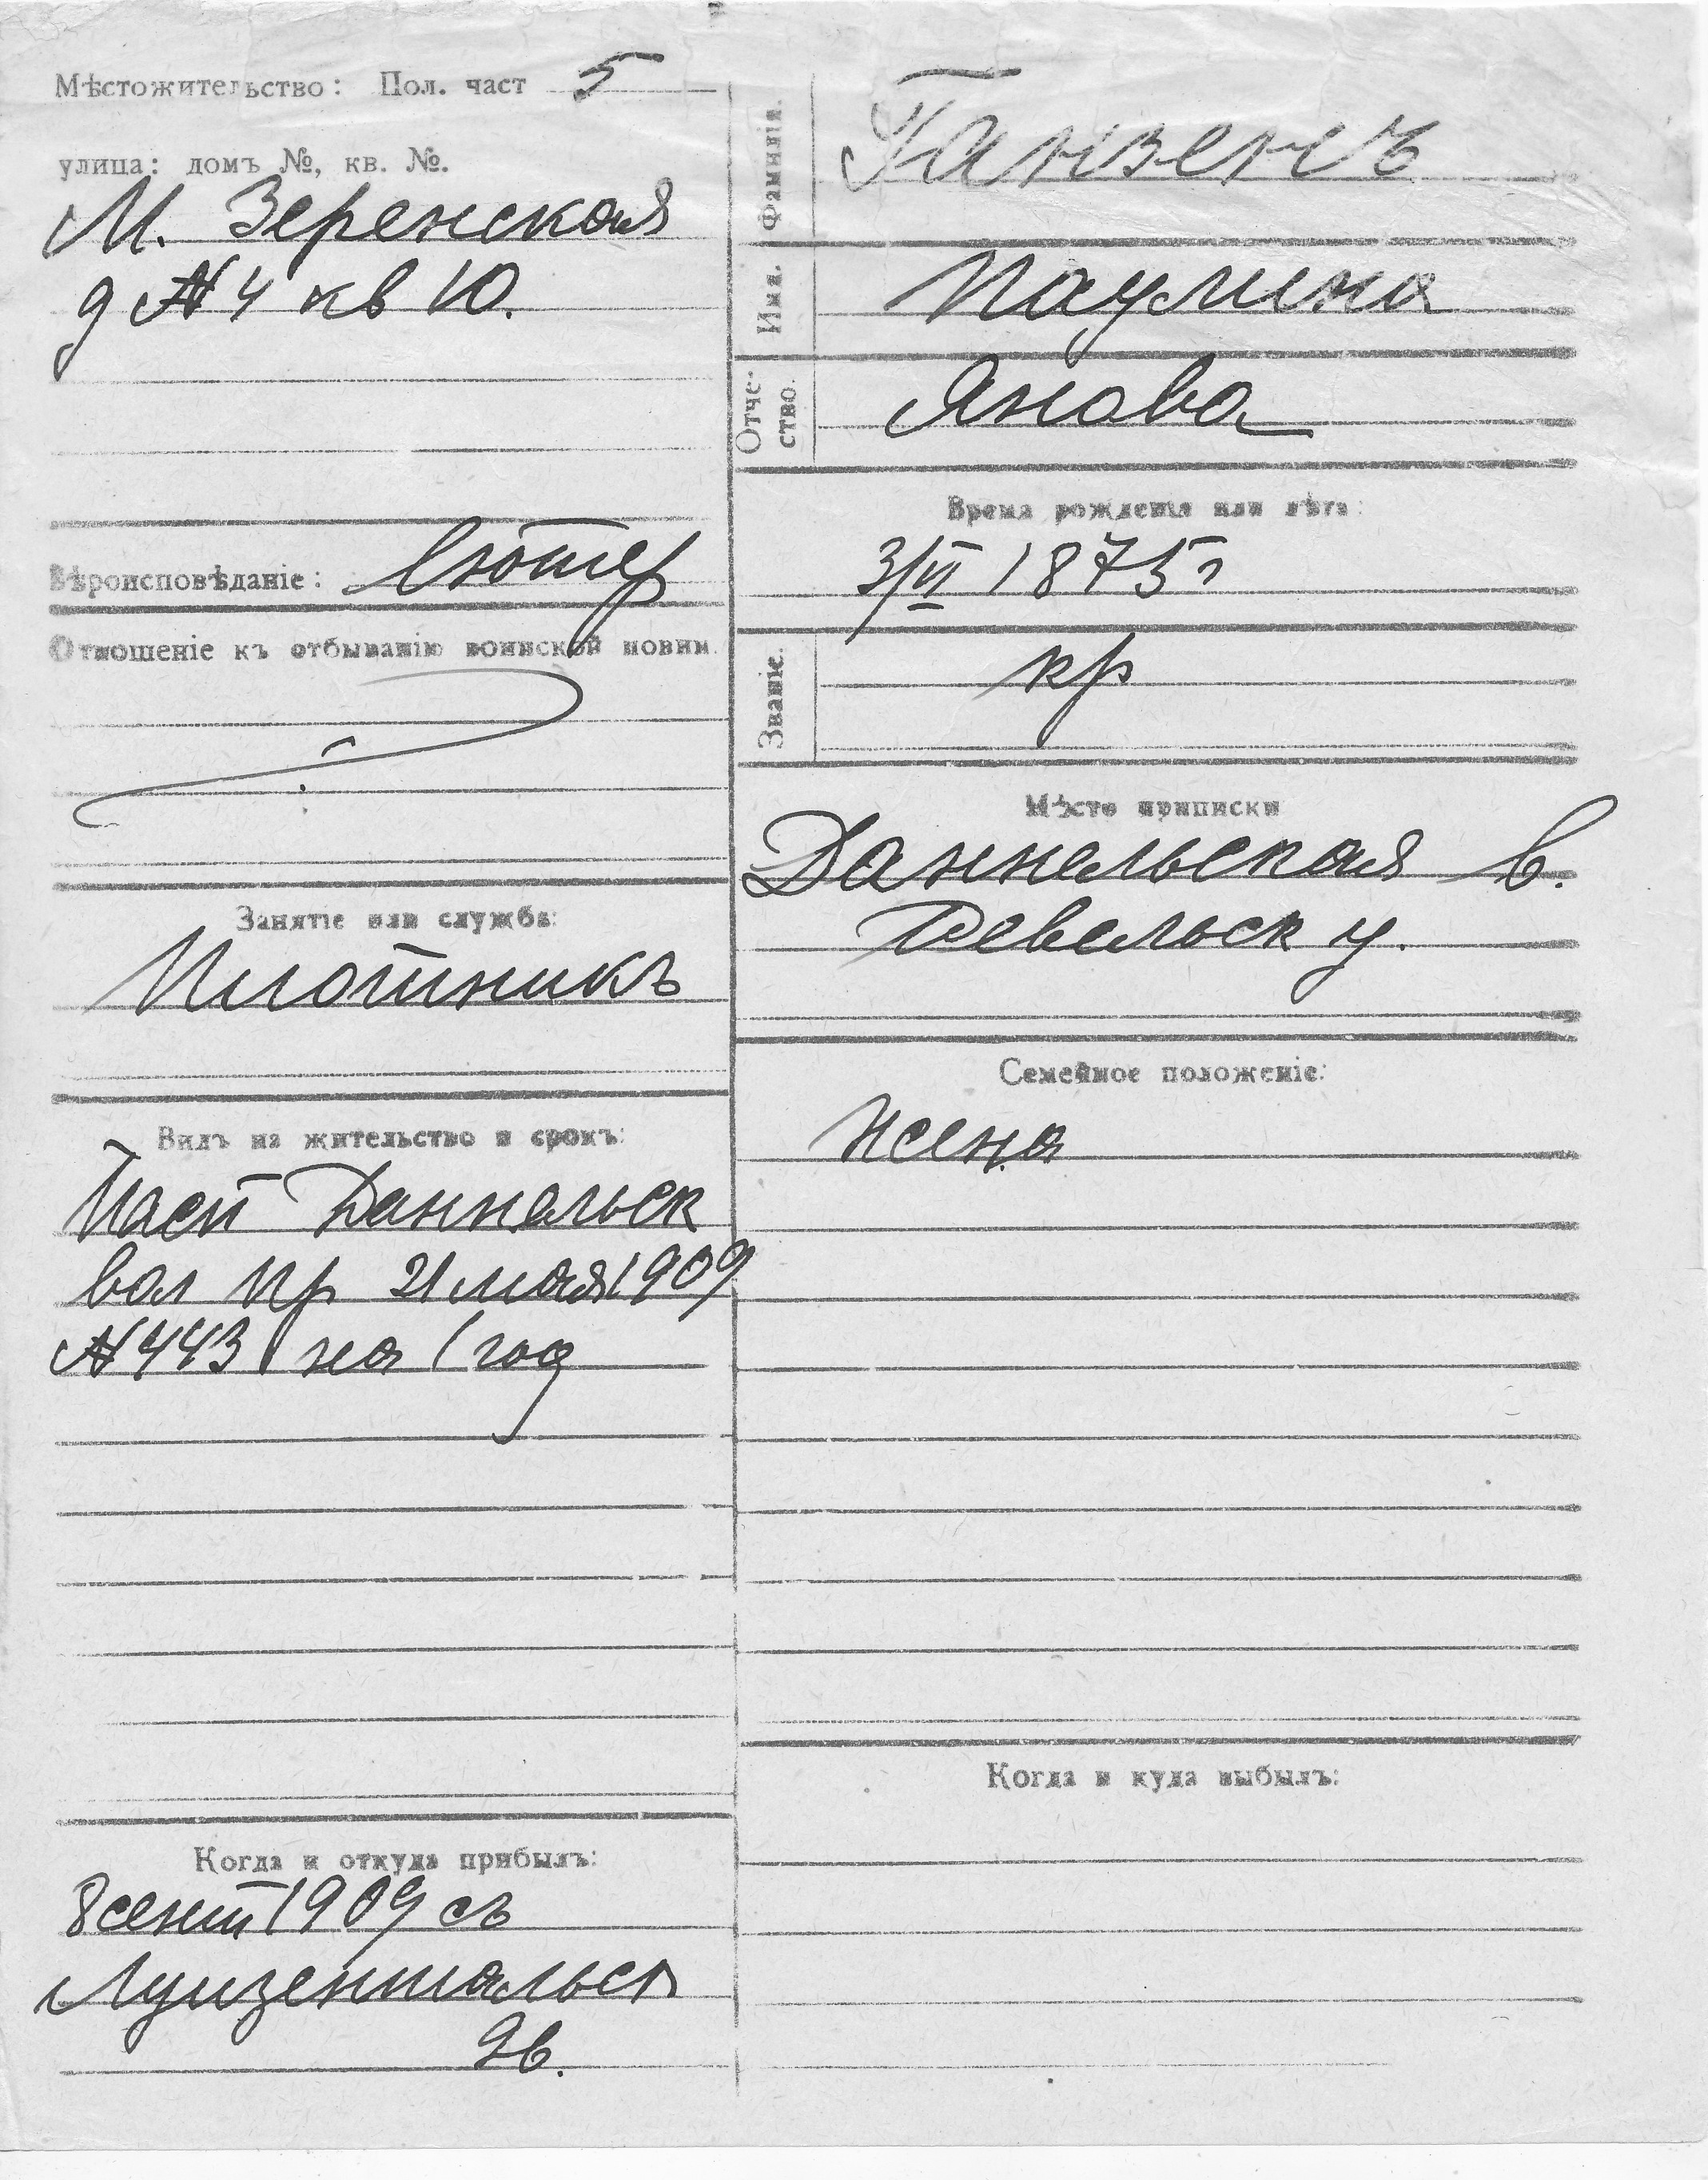 Мѣстожительство: Пол. част 5
улица: домъ №, кв. №.
М. Зеренская
д № 4 кв 10.
Вѣроисповѣданіе: Лютер
Отношеніе къ отбыванію воинской повин.
Занятіе или служба:
Плотникъ
Видъ на жительство и срокъ:
Пасп Даннельск
вол пр 21 мая 1909
№ 443 на 1 год
Когда и откуда прибылъ:
8 сент 1909 съ
Луизентальск
9в.
Фамилія.
Ганзенъ
Имя.
Паулина
Отче-
ство.
Янова
Время рожденія или лѣта:
3/VI 1875 г
Званіе.
кр
Мѣсто приписки
Даннельская в.
Ревельск у.
Семейное положеніе:
Жена
Когда и куда выбылъ: